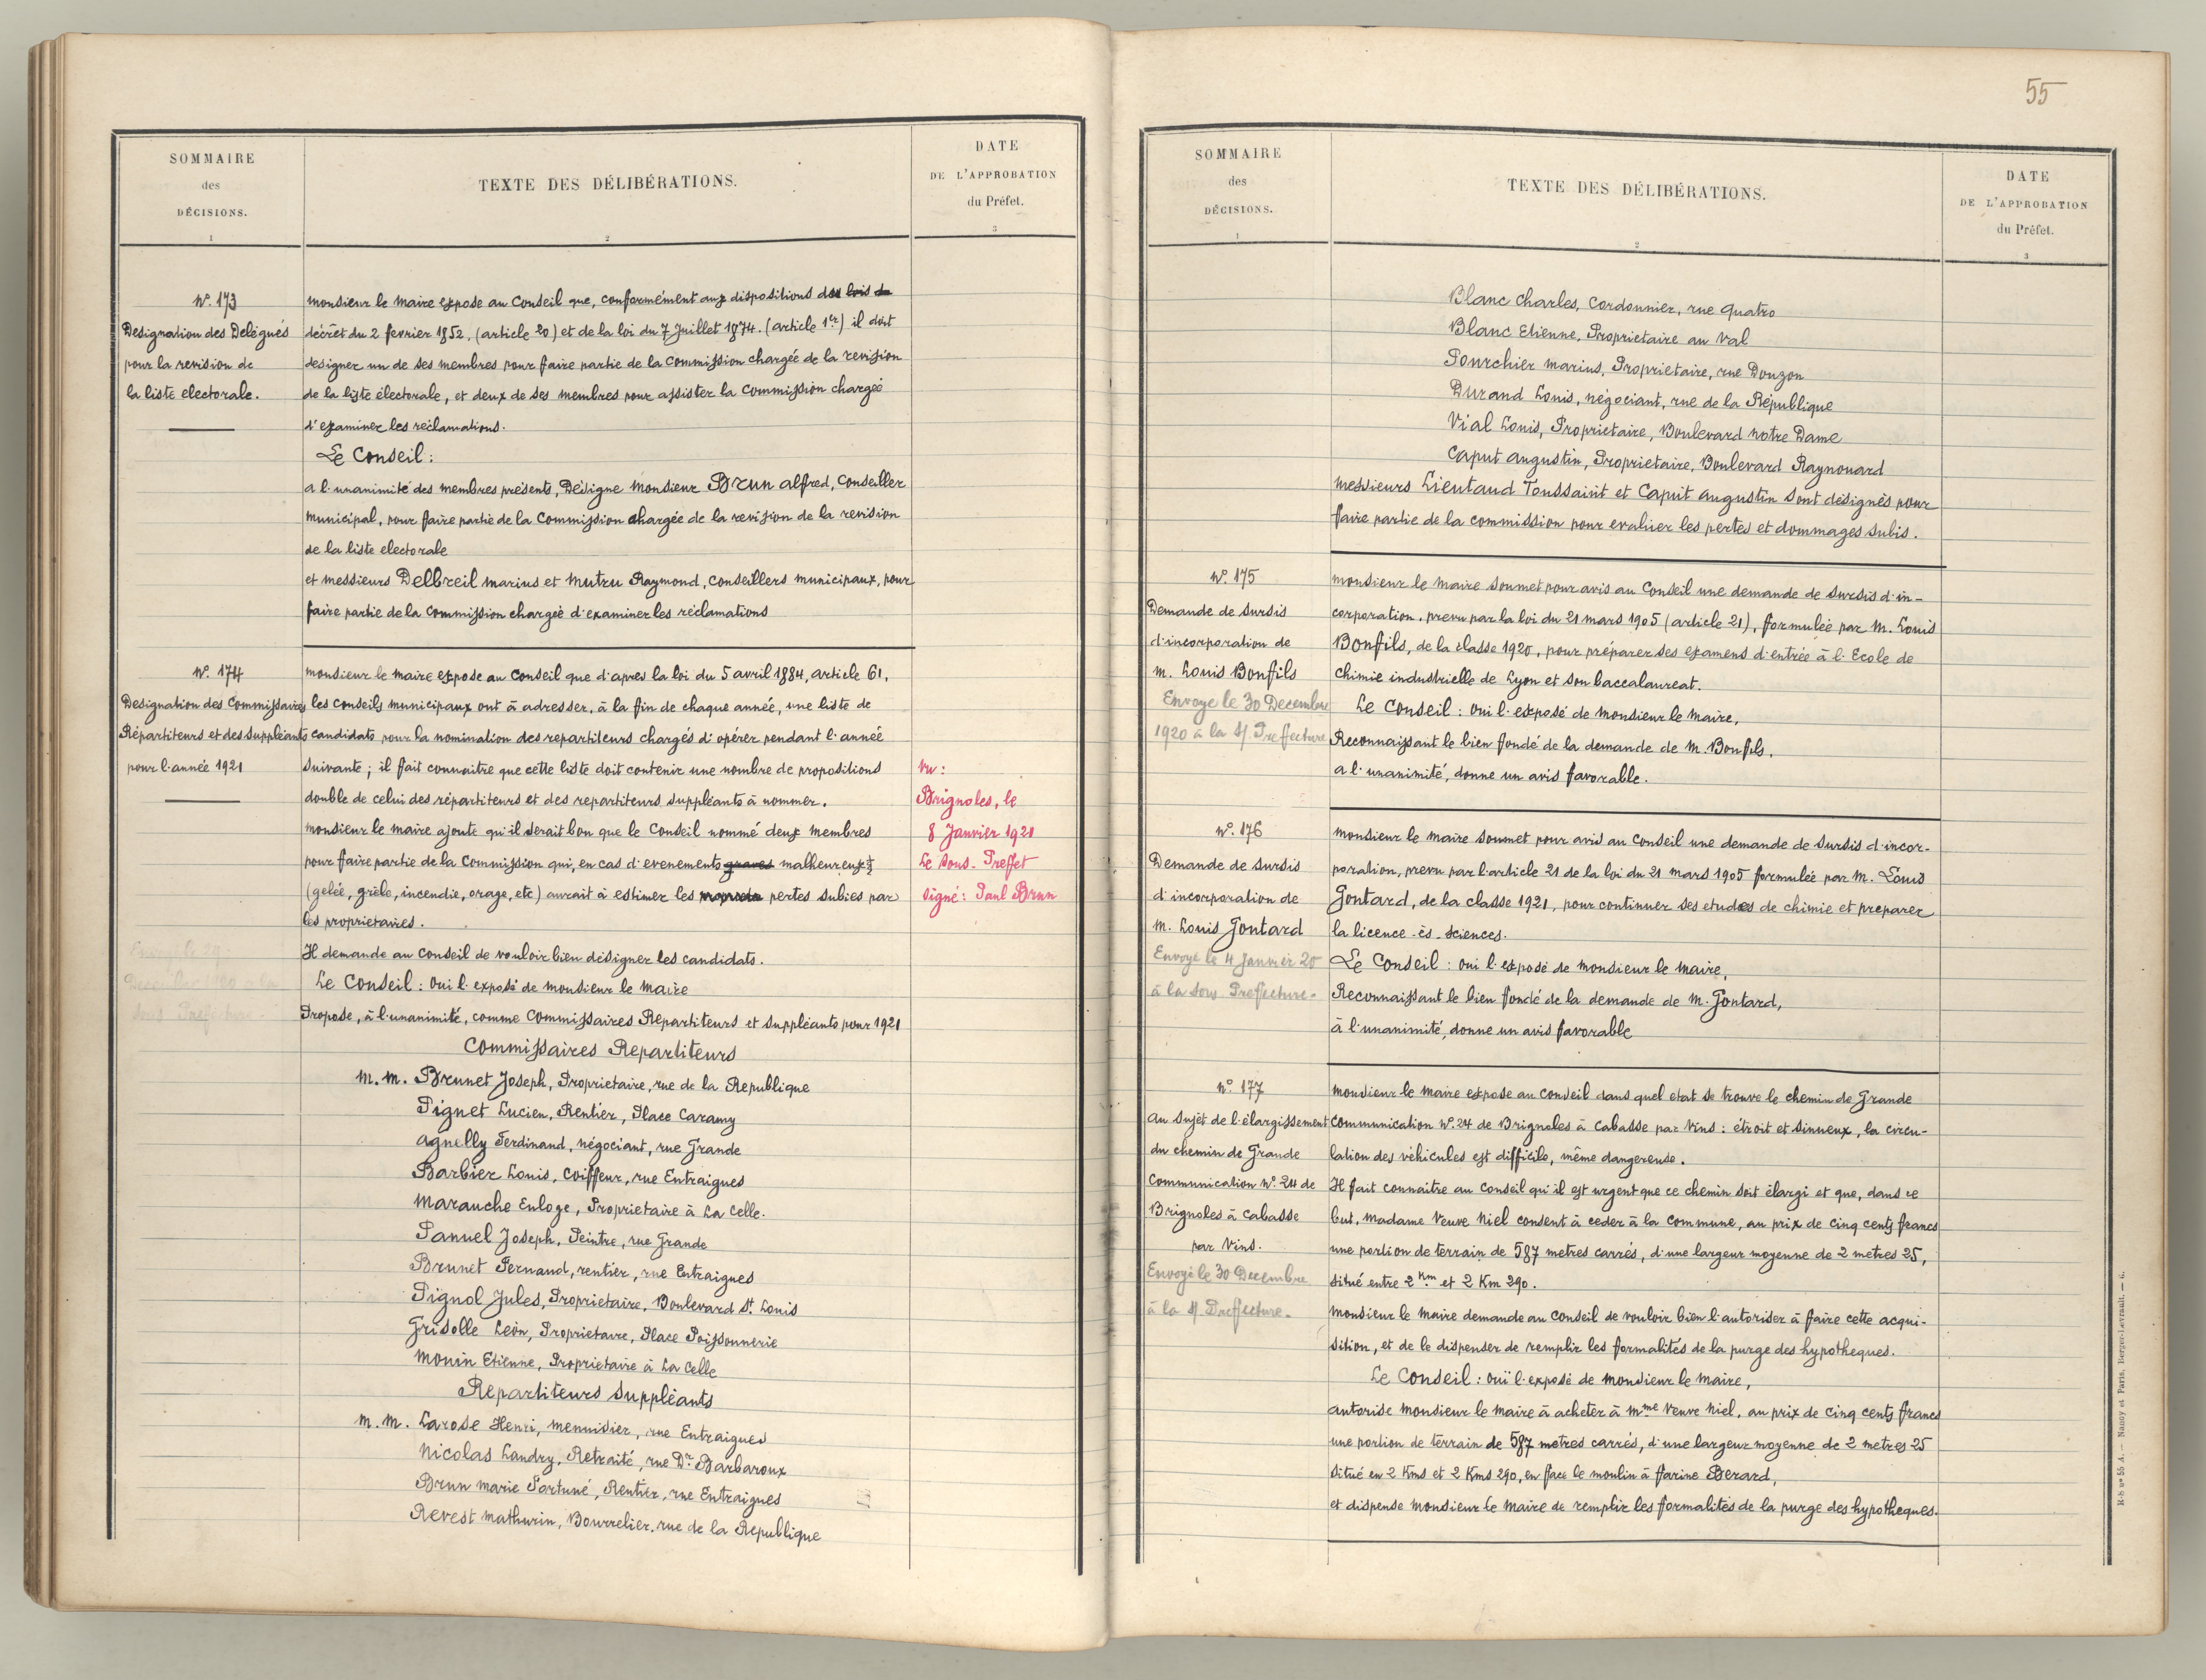 SOMMAIRE
des
DÉCISIONS.
1
TEXTE DES DÉLIBÉRATIONS.
2
DATE
DE L'APPROBATION
du Préfet.
3
N°. 173
Designation des Delégués
pour la revision de
la liste electorale.
Monsieur le Maire expose au Conseil que, conformément aux dispositions des lois de
décret du 2 fevrier 1852. (article 20) et de la loi du 7 Juillet 1874. (article 1er) il doit
designer un de ses membres pour faire partie de la Commission chargée de la revision
de la liste électorale, et deux de ses membres pour assister la Commission chargée
d'examiner les réclamations.
Le Conseil:
a l'unanimité des membres présents, Designe Monsieur Brun Alfred, Conseiller
Municipal, pour faire partie de la Commission chargée de la revision de la revision
de la liste electorale
et messieurs Delbreil Marius et Mutru Raymond, Conseillers Municipaux, pour
faire partie de la Commission chargée d'examiner les réclamations
N°. 174
Designation des Commissaires
Répartiteurs et des Suppléants
pour l'année 1921
Envoyé le 29
Decembre 1920 a la
Sous Prefecture.
Monsieur le Maire expose au Conseil que d'apres la loi du 5 avril 1884, article 61,
les Conseils Municipaux ont à adresser, à la fin de chaque année, une liste de
candidats pour la nomination des repartiteurs chargés d'opérer pendant l'année
suivante; il fait connaitre que cette liste doit contenir une nombre de propositions
double de celui des répartiteurs et des repartiteurs suppléants à nommer.
Monsieur le Maire ajoute qu'il serait bon que le Conseil nommé deux membres
pour faire partie de la Commission qui, en cas d'evenements graves malheureux
(gelée, grèle, incendie, orage, etc) aurait à estimer les pertes subies par
les proprietaires.
Il demande au Conseil de vouloir bien designer les candidats.
Le Conseil: Oui l'exposé de Monsieur le Maire
Propose, à l'unanimité, comme Commissaires Repartiteurs et Suppléants pour 1921
Commissaires Repartiteurs
M.M. Brunet Joseph, Proprietaire, rue de la Republique
Pignet Lucien, Rentier, Place Caramy
Agnelly Ferdinand, négociant, rue Grande
Barbier Louis, Coiffeur, rue Entraigues
Marauche Euloge, Proprietaire à La Celle.
Panuel Joseph, Peintre, rue Grande
Brunet Fernand, rentier, rue Entraigues
Pignol Jules, Proprietaire, Boulevard St. Louis
Grisolle Leòn, Proprietaire, Place Poissonnerie
Monin Etienne, Proprietaire à La Celle
Repartiteurs Suppléants
M.M. Larose Henri, Menuisier, rue Entraigues
Nicolas Landry, Retraité, rue Dr Barbaroux
Brun Marie Fortuné, Rentier, rue Entraigues
Revest Mathurin, Bourrelier, rue de la Republique
Vu:
Brignoles, le
8 Janvier 1921
Le Sous-Preffet
Signé: Paul Brun
55
SOMMAIRE
des
DÉCISIONS.
1
TEXTE DES DÉLIBÉRATIONS.
2
DATE
DE L'APPROBATION
du Préfet.
3
Blanc Charles, Cordonnier, rue Quatro
Blanc Etienne, Proprietaire au Val
Pourchier Marius, Proprietaire, rue Douzon
Durand Louis, négociant, rue de la République
Vial Louis, Proprietaire, Boulevard Notre Dame
Caput Augustin, Proprietaire, Boulevard Raynouard
Messieurs Lieutaud Toussaint et Caput Augustin sont designés pour
faire partie de la commission pour evaluer les pertes et dommages subis.
N°. 175
Demande de Sursis
d'incorporation de
M. Louis Bonfils
Envoye le 30 Decembre
1920 à la S/ Preffecture
Monsieur le Maire soumet pour avis au Conseil une demande de sursis d'in-
corporation, prevu par la loi du 21 Mars 1905 (article 21), formulée par M. Louis
Bonfils, de la classe 1920, pour préparer ses examens d'entrée à l'Ecole de
Chimie industrielle de Lyon et son baccalaureat.
Le Conseil: Oui l'exposé de Monsieur le Maire,
Reconnaissant le bien fondé de la demande de M. Bonfils,
a l'unanimité, donne un avis favorable.
N°. 176
Demande de Sursis
d'incorporation de
M. Louis Gontard
Envoyé le 4 Janvier 20
à la Sous Preffecture.
Monsieur le Maire soumet pour avis au Conseil une demande de sursis d'incor-
poration, prevu par l'article 21 de la loi du 21 Mars 1905 formulée par M. Louis
Gontard, de la classe 1921, pour continuer ses etudes de chimie et preparer
la licence-ès-sciences.
Le Conseil: Oui l'exposé de Monsieur le Maire,
Reconnaissant le bien fondé de la demande de M. Gontard,
à l'unanimité, donne un avis favorable
N°. 177
Au Sujet de l'élargissement
du chemin de Grande
Communication N°. 24 de
Brignoles à Cabasse
par Vins.
Envoyé le 30 Decembre
à la S/ Preffecture.
Monsieur le Maire expose au Conseil dans quel etat se trouve le chemin de Grande
Communication N°. 24 de Brignoles à Cabasse par Vins: étroit et sinueux, la circu-
lation des véhicules est difficile, même dangereuse.
Il fait connaitre au Conseil qu'il est urgent que ce chemin soit élargi et que, dans ce
but, Madame Veuve Niel consent à ceder à la Commune, au prix de cinq cents francs
une portion de terrain de 587 metres carrés, d'une largeur moyenne de 2 metres 25,
situé entre 2 Km et 2 Km 290.
Monsieur le Maire demande au Conseil de vouloir bien l'autoriser à faire cette acqui-
sition, et de le dispenser de remplir les formalités de la purge des hypotheques.
Le Conseil: Ouï l'exposé de Monsieur le Maire,
autorise Monsieur le Maire à acheter à Mme Veuve Niel, au prix de cinq cents francs
une portion de terrain de 587 metres carrés, d'une largeur moyenne de 2 metres 25
situé en 2 Kms et 2 Kms 290, en face le moulin à farine Berard,
et dispense Monsieur le Maire de remplir les formalités de la purge des hypotheques.
R-S nº 55 A. — Nancy et Paris, Berger-Levrault. — 6.